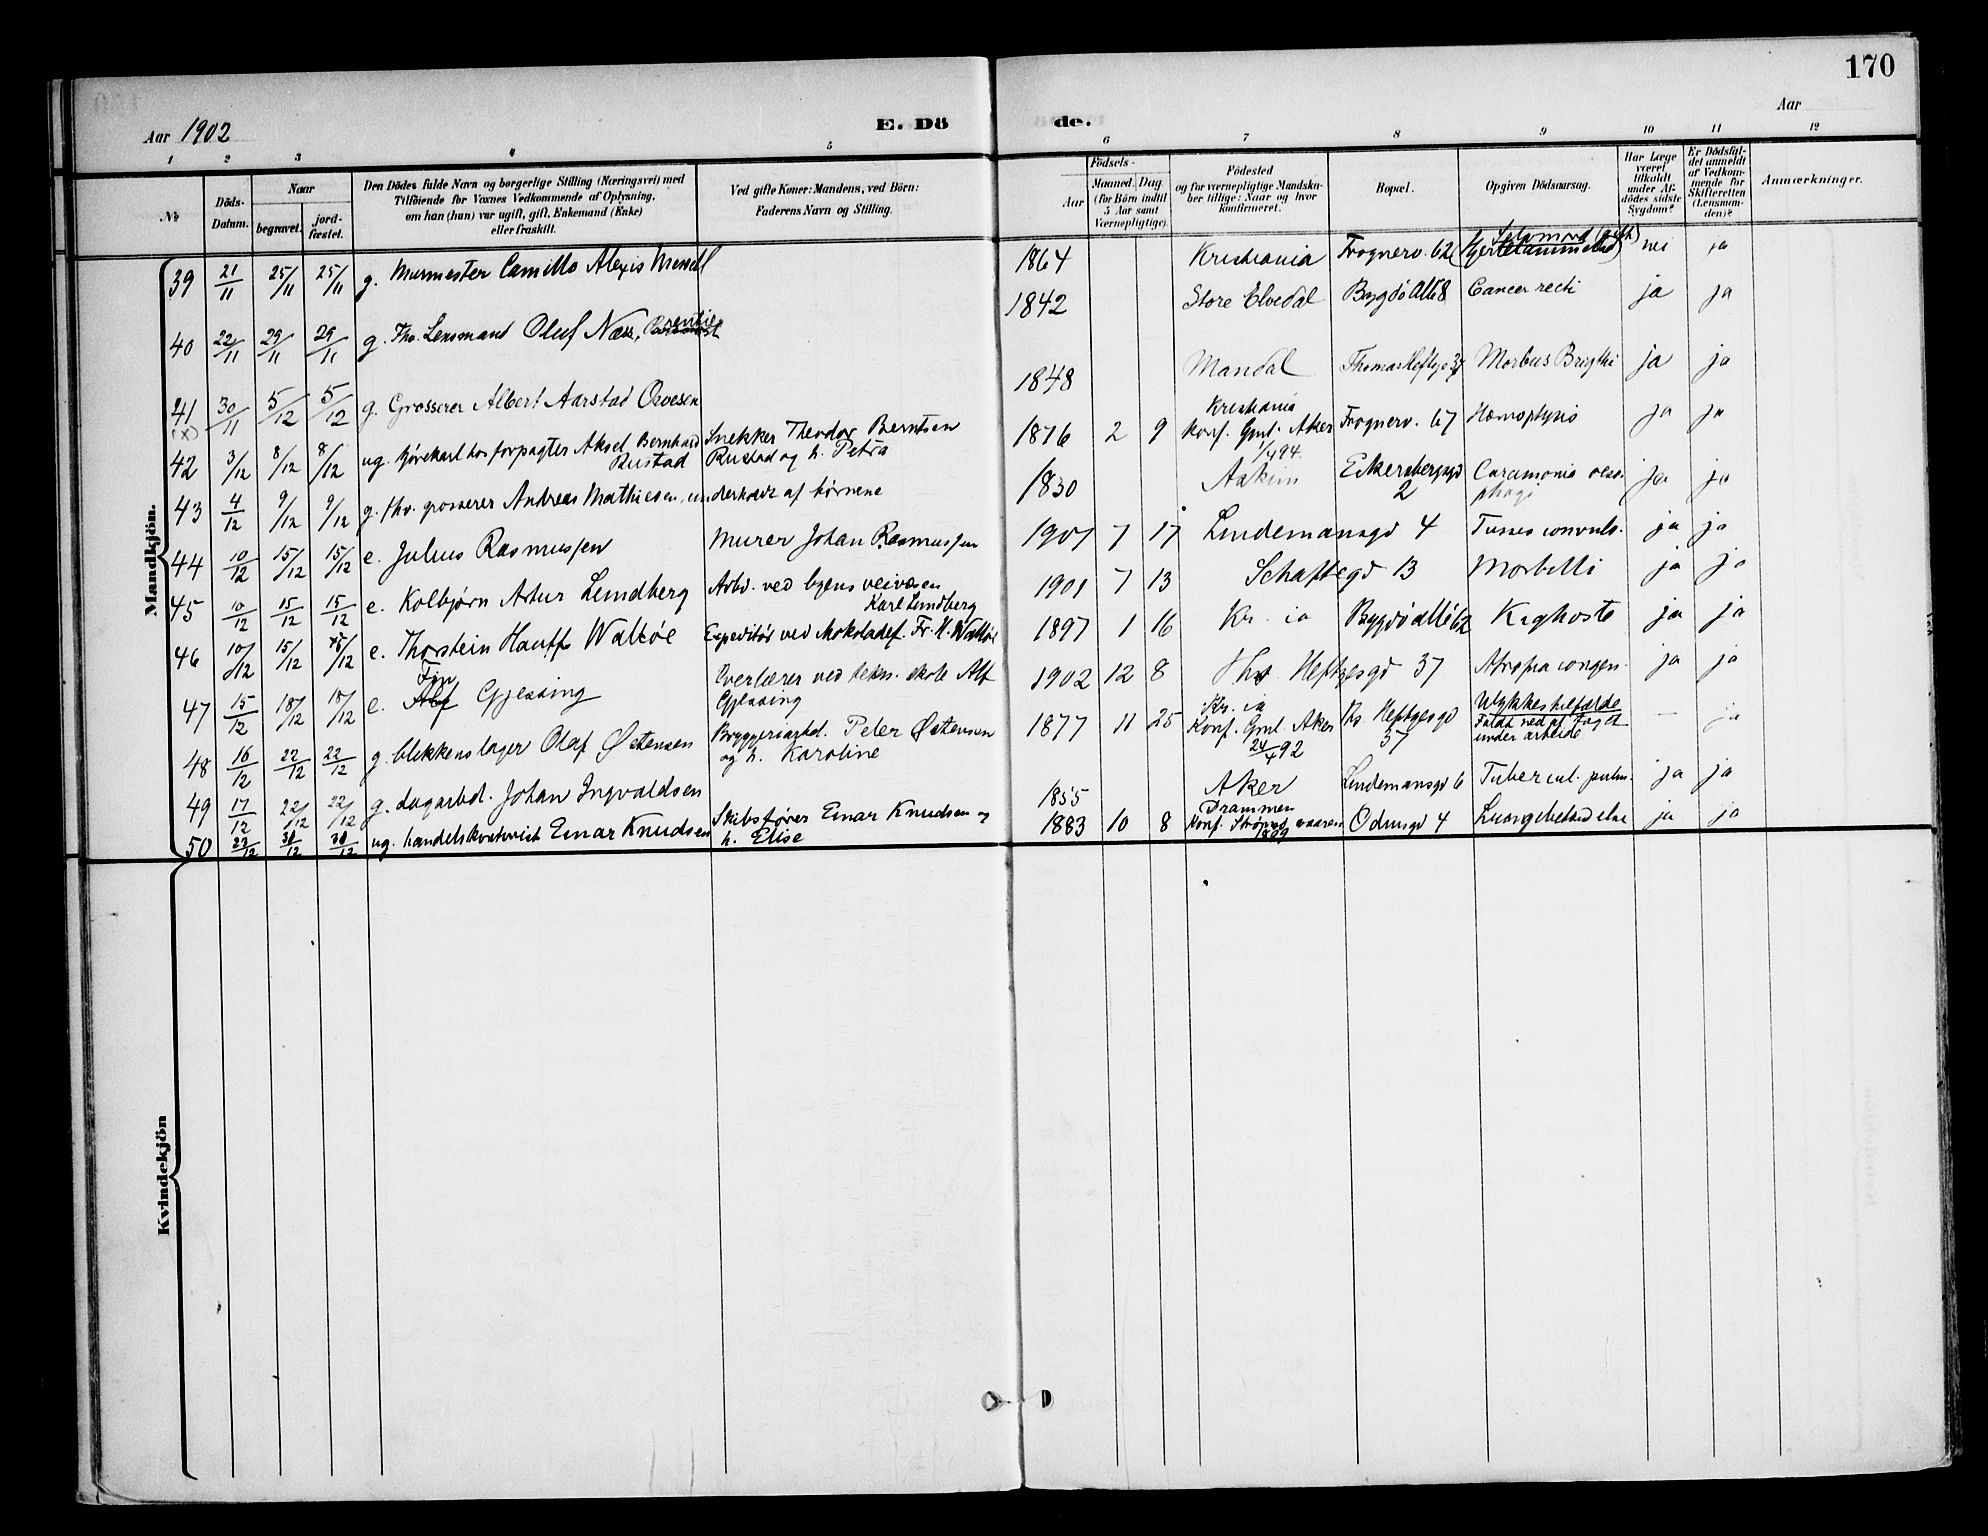 170
Aar 1902
E. Dö
de.
Aar
1 2 3 4 5 6 7 8 9 10 11 12
No
Döds-Datum.
Naar
begravet.
jord-fæstet.
Den Dödes fulde Navn og borgerlige Stilling (Næringsvei) med
Tilföiende for Voxnes Vedkommende af Oplysning,
om han (hun) var ugift, gift, Enkemand (Enke)
eller fraskilt.
Ved gifte Koner: Mandens, ved Börn:
Faderens Navn og Stilling.
Födsels-
Aar
Maaned. Dag.
(for Börn indtil
5 Aar samt
Værnepligtige).
Födested
og for værnepligtige Mandska-
ber tillige: Naar og hvor
konfirmeret.
Bopæl.
Opgiven Dödsaarsag.
Har Læge
været
tilkaldt
under Af-
dödes sidste
Sygdom?
Er Dödsfal-
det anmeldt
af Vedkom-
mende for
Skifteretten
(Lensman-
den)?
Anmærkninger.
Mandkjön.
39 21/11 25/11 25/11 g. Murmester Camillo Alexis 1864 Kristiania Frognerv. 62 Selvmord (gift) nei ja
40 22/11 29/11 29/11 g. Fhv. Lensmand Oluf Næss, rentier 1842 Store Elvedal Bygdö Allé 8 Cancer recti ja ja
41 30/11 5/12 5/12 g. Grosserer Albert Aarstad 1848 Mandal Thomas Heftyesgd 37 Morbus Brigthi ja ja
(x)
42 3/12 8/12 8/12 ug. kjörekarl hos forpagter Aksel Bernhard Rustad Snekker Theodor Berntsen Rustad og h. Petra 1876 2 9 Kristiania konf. Gml. Aker 1/4 94. Frognerv. 67 Hæmoptysis ja ja
43 4/12 9/12 9/12 g. fhv. grosserer Andreas Mathiesen, underholdt af börnene 1830 Askim Eckersbergsgd 2 ja ja
44 10/12 15/12 15/12 e. Julius Rasmussen Murer Johan Rasmussen 1901 7 17 Lindemansgd 4 Tussis convuls. ja ja
45 10/12 15/12 15/12 e. Kolbjørn Artur Lundberg Arbd. ved byens veivæsen Karl Lundberg 1901 7 13 Schaftegd 13 Morbilli ja ja
46 10/12 15/12 15/12 e. Thorstein Hauff Waltöe Expeditör ved chokoladef. Fr. H. Waltöe 1897 1 16 Kr. ia Bygdö allé 62 Kighoste ja ja
47 15/12 18/12 18/12 e. Fin Gjessing Overlærer ved tekn. skole Alf Gjessing 1902 12 8 Ths. Heftyesgd 37 Atrofia congen. ja ja
48 16/12 22/12 22/12 g. blikkenslager Olaf Østensen Bryggeriarbd. Peter Østensen og h. Karoline 1877 11 25 Kr. ia Konf. Gml. Aker 24/4 92 Ths Heftyesgd 37 Ulykkestilfælde Faldt ned af Taget under arbeide — ja
49 17/12 22/12 22/12 g. dagarbd. Johan Ingvaldsen 1855 Aker Lindemansgd 6 Tubercul. pulm. ja ja
50 23/12 30/12 30/12 ug. handelskontorist Einar Knudsen Skibsförer Einar Knudsen og h. Elise 1883 10 8 Drammen Konf. Strømsö 1899 Odinsgd 4 Lungebetændelse ja ja
Kvindekjön